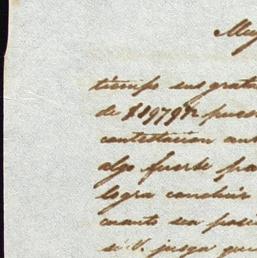 Muy
tiempo sus grat
de $1979 pues
contestacion ant
algo fuerte pa
logra concluir
cuanto sea posi
si V. juzga que